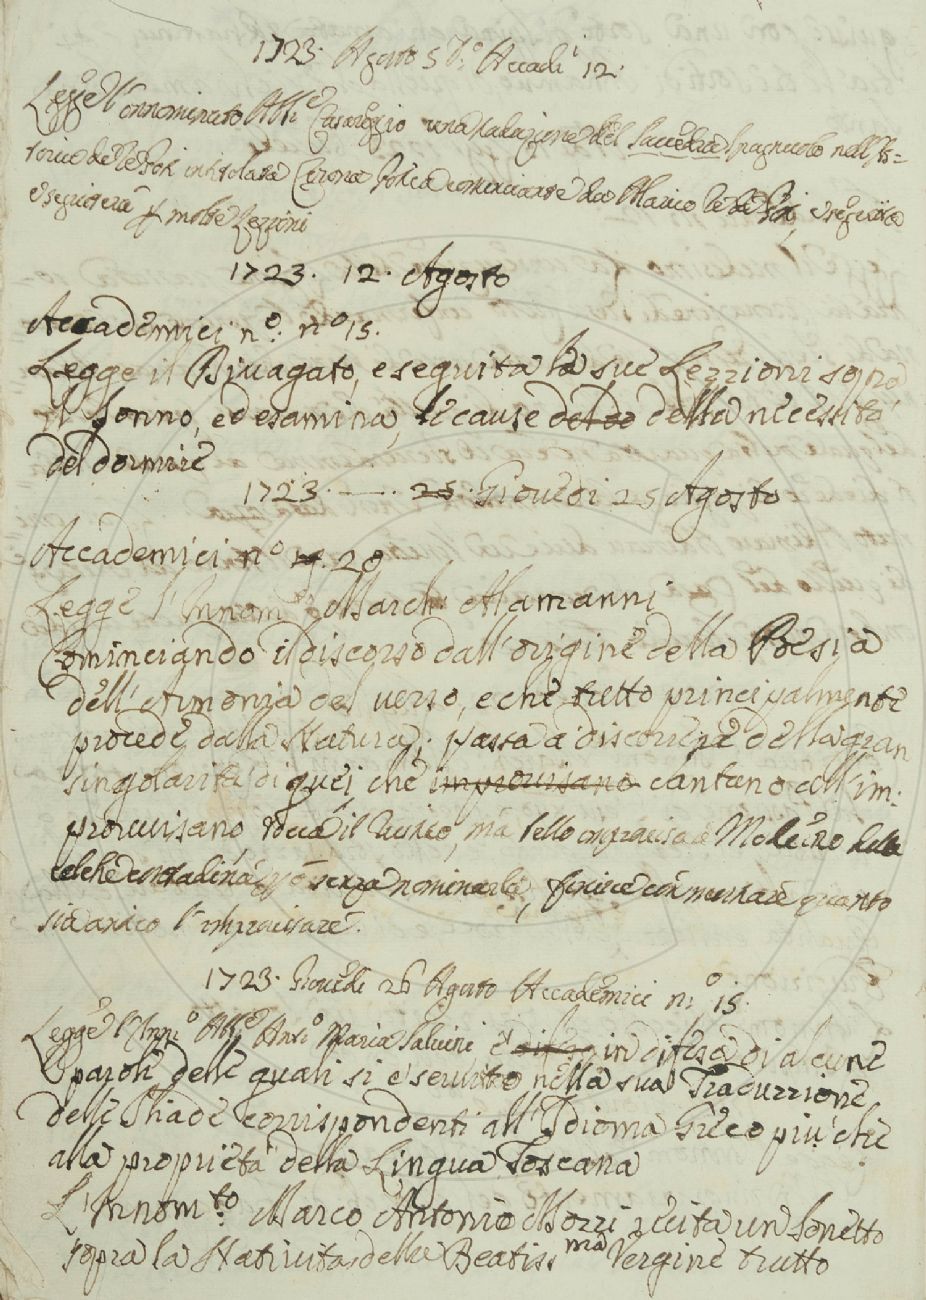 1723. Agosto 5 Accadi 12.
Legge l'Innominato Abb.e Casaregio una narazione del Saavedra Spagnuolo nell'Is=
torie de Re Goti intitolata Corona Gotica cominciante da Alarico Re de Goti, e seguita
e seguitera p molte Lezzioni
1723. 12. Agosto
Accademici n.o n.o 15.
Legge il Divagato, e seguita le sue Lezzioni sopra
il Sonno, ed esamina, le cause della necessità
del dormire
1723. — . 25. Giovedi 25 Agosto
Accademici n.o 20
Legge l'Innom.to March: Alamanni
Cominciando il discorso dall'origine della Poesia
dell'Armonia del verso, e che tutto principalmente
procede dalla Natura; passa a discorrere della gran
singolarità di quei che improvisano cantano all'im.
provuisano, tocca il ma
senza nominarla, finisce con mostrare quanto
sia antico l'improvisare.
1723. Giovedi 26 Agosto Accademici n.o 15.
Legge l'Inn.o Abb.e Ant.o Maria Salvini è in difesa di alcune
parole delle quali si è servito nella sua Traduzzione
delle Iliade corrispondenti all'Idioma Greco più che
alla proprietà della Lingua Toscana
L'Innom.to Marco Antonio Mozzi recita un Sonetto
sopra la Natività della Beatiss.ma Vergine tratto